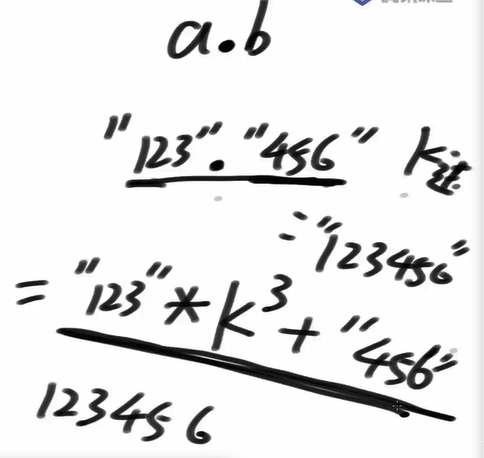 a.b
"123"."456" k进
="123456"
="123"*k³+"456"
123456